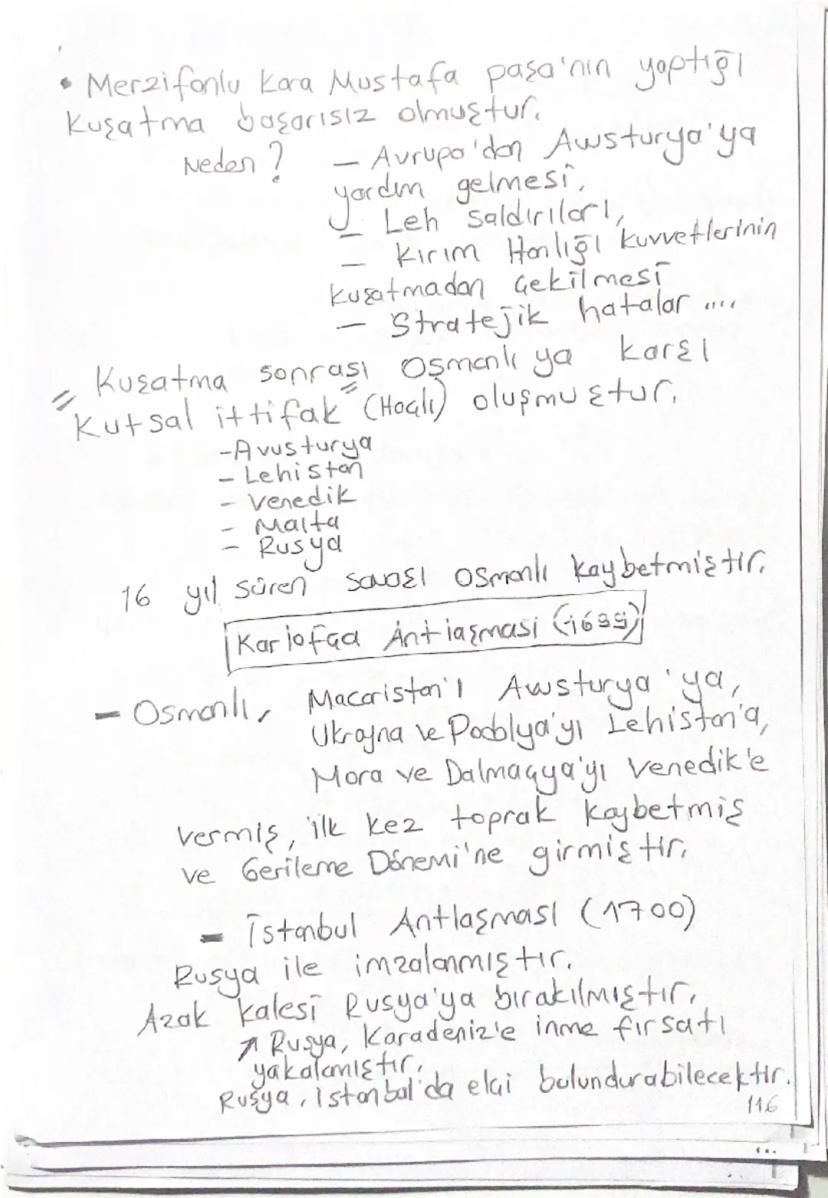 • Merzifonlu Kara Mustafa paşa'nın yaptığı
kuşatma başarısız olmuştur.
Neden? – Avrupa'dan Awsturya'ya
yardım gelmesi,
– Leh saldırıları,
– Kırım Hanlığı kuvvetlerinin
kuşatmadan çekilmesi
– Stratejik hatalar ....
Kuşatma sonrası Osmanlıya karşı
"Kutsal ittifak" (Haçlı) oluşmuştur.
- Avusturya
- Lehistan
- venedik
- Malta
- Rusya
16 yıl süren savaşı Osmanlı kaybetmiştir.
Karlofça Antlaşması (1699)
– Osmanlı, Macaristan'ı Awsturya'ya,
Ukrayna ve Podolya'yı Lehistan'a,
Mora ve Dalmaçya'yı Venedik'e
vermiş, ilk kez toprak kaybetmiş
ve Gerileme Dönemi'ne girmiştir.
– İstanbul Antlaşması (1700)
Rusya ile imzalanmıştır.
Azak kalesi Rusya'ya bırakılmıştır.
↗ Rusya, Karadeniz'e inme fırsatı
yakalamıştır.
Rusya, İstanbul'da elçi bulundurabilecektir.
116